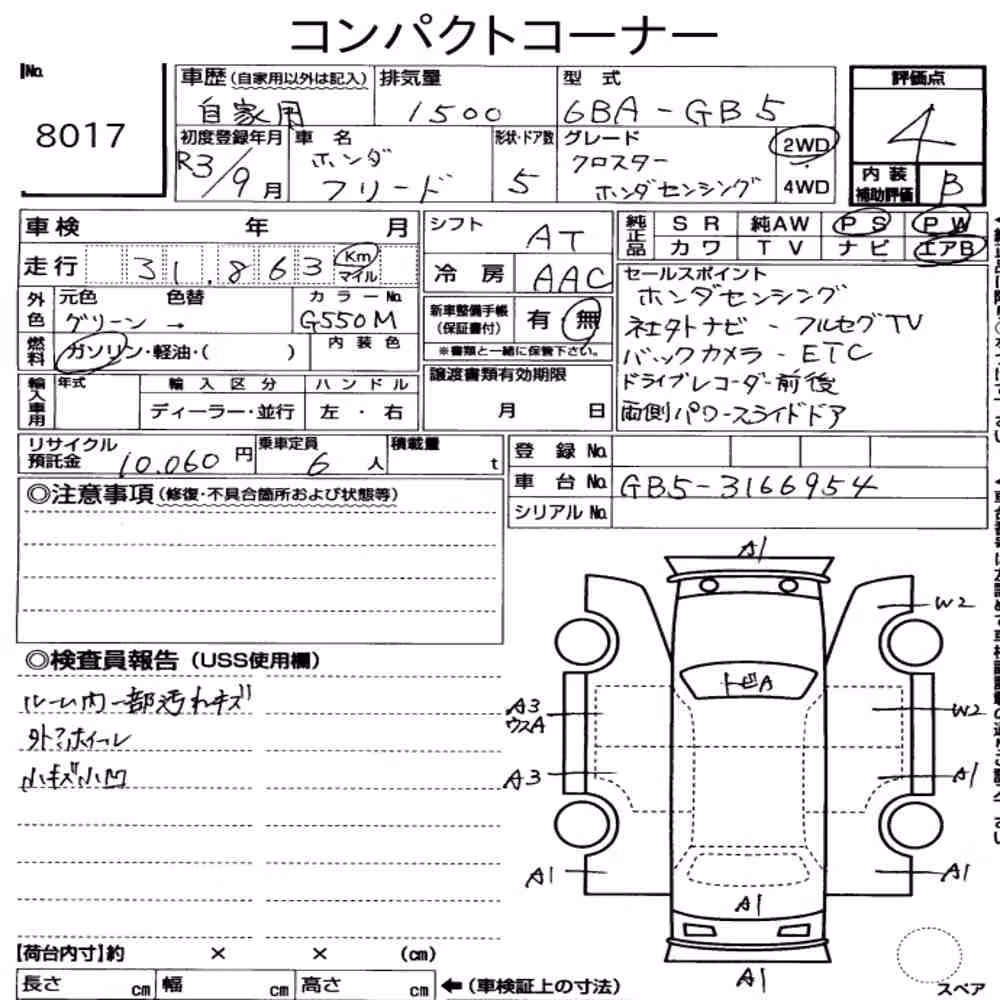 コンパクトコーナー
No. 8017
車歴(自家用以外は記入) 自家用
排気量 1500
型式 6BA-GB5
評価点 4
初度登録年月 R3/9月
車名 ホンダ フリード
形状・ドア数 5
グレード クロスター ホンダセンシング
2WD
4WD
内装補助評価 B
車検 年 月
走行 31,863 Km マイル
シフト AT
純正品 SR 純AW PS PW
カワ TV ナビ エアB
冷房 AAC
外色 元色 色替 カラーNo.
グリーン → G550M
新車整備手帳(保証書付) 有 無
※書類と一緒に保管下さい。
燃料 ガソリン・軽油・( )
内装色
セールスポイント
ホンダセンシング
社外ナビ - フルセグTV
バックカメラ - ETC
ドライブレコーダー前後
両側パワースライドドア
輸入車用 年式 輸入区分 ハンドル
ディーラー・並行 左・右
譲渡書類有効期限
月 日
リサイクル預託金 10,060円
乗車定員 6人
積載量 t
登録No.
車台No. GB5-3166954
シリアルNo.
◎注意事項(修復・不具合箇所および状態等)
◎検査員報告(USS使用欄)
ルーム内一部汚れキズ
外アホイール
小キズ小凹
A1
W2
トビA
A3
ウスA
W2
A3
A1
A1
A1
A1
A1
【荷台内寸】約 × × (cm)
長さ cm 幅 cm 高さ cm ←(車検証上の寸法)
スペア